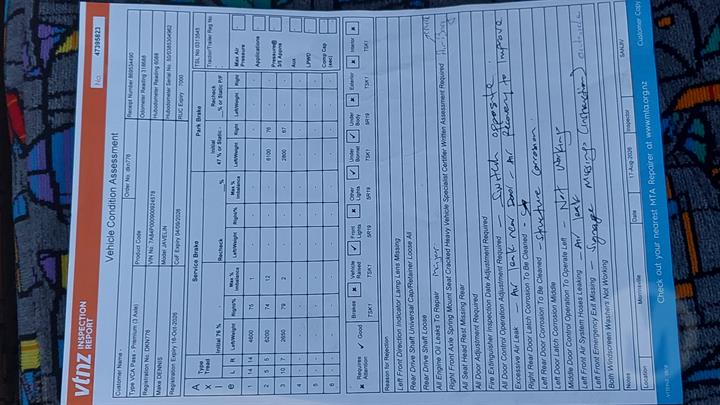 vtnz INSPECTION REPORT
Vehicle Condition Assessment
No. 47395823
Customer Name -
Type VCA Pass - Premium (3 Axle)
Order No. dkn776
Receipt Number 869534490
Registration No. DKN776
Product Code
Odometer Reading 318688
Make DENNIS
VIN No
Hubodometer Reading 6088
Registration Expiry 16-Oct-2026
Model JAVELIN
Hubodometer Serial No.
CoF Expiry 04/09/2026
RUC Expiry 7000
TSL No 0313548
Service Brake
Park Brake
Traction/Trailer Reg No
Axle
Type Tread
Initial 76 %
Recheck
Initial 47 % or Static -
Recheck __% or Static P/F
Max Air Pressure
L R Left/Weight Right% Max % Imbalance Left/Weight Right% Max % Imbalance Left/Weight Right Left/Weight Right
Applications
1 14 14 4600 75
2 5 5 6200 74 12 6100 76
Pressure@ 3/5 Appns
3 10 7 2650 79 2 2800 67
Aux
4
LPWD
5
Comp Cap (sec)
6
Requires Attention
Good
Brakes TSK1
Vehicle Raised TSK1
Front Lights SR19
Other Lights SR19
Under Bonnet TSK1
Under Body SR19
Exterior TSK1
Interior TSK1
Reason for Rejection
Left Front Direction Indicator Lamp Lens Missing
Rear Drive Shaft Universal Cap/Retainer Loose All
Rear Drive Shaft Loose
All Engine Oil Leaks To Repair major
Right Front Axle Spring Mount Seat Cracked Heavy Vehicle Specialist Certifier Written Assessment Required
All Seat Head Rest Missing Rear
All Door Adjustment Required
Fire Extinguisher Inspection Date Adjustment Required
All Door Control Operation Adjustment Required - Switch opposite
Excessive Air Leak Air leak rear Door - Air Recovery to improve
Right Rear Door Latch Corrosion To Be Cleaned
Left Rear Door Corrosion To Be Cleaned - structure corrosion
Left Door Latch Corrosion Middle
Middle Door Control Operation To Operate Left - Not Working
Left Front Air System Hoses Leaking - Air leak
Left Front Emergency Exit Missing - Signage missing (instruction)
Both Windscreen Washers Not Working
Notes
Location Morrinsville
Date 17-Aug-2026
Inspector SANJIV
Check out your nearest MTA Repairer at www.mta.org.nz
Customer Copy